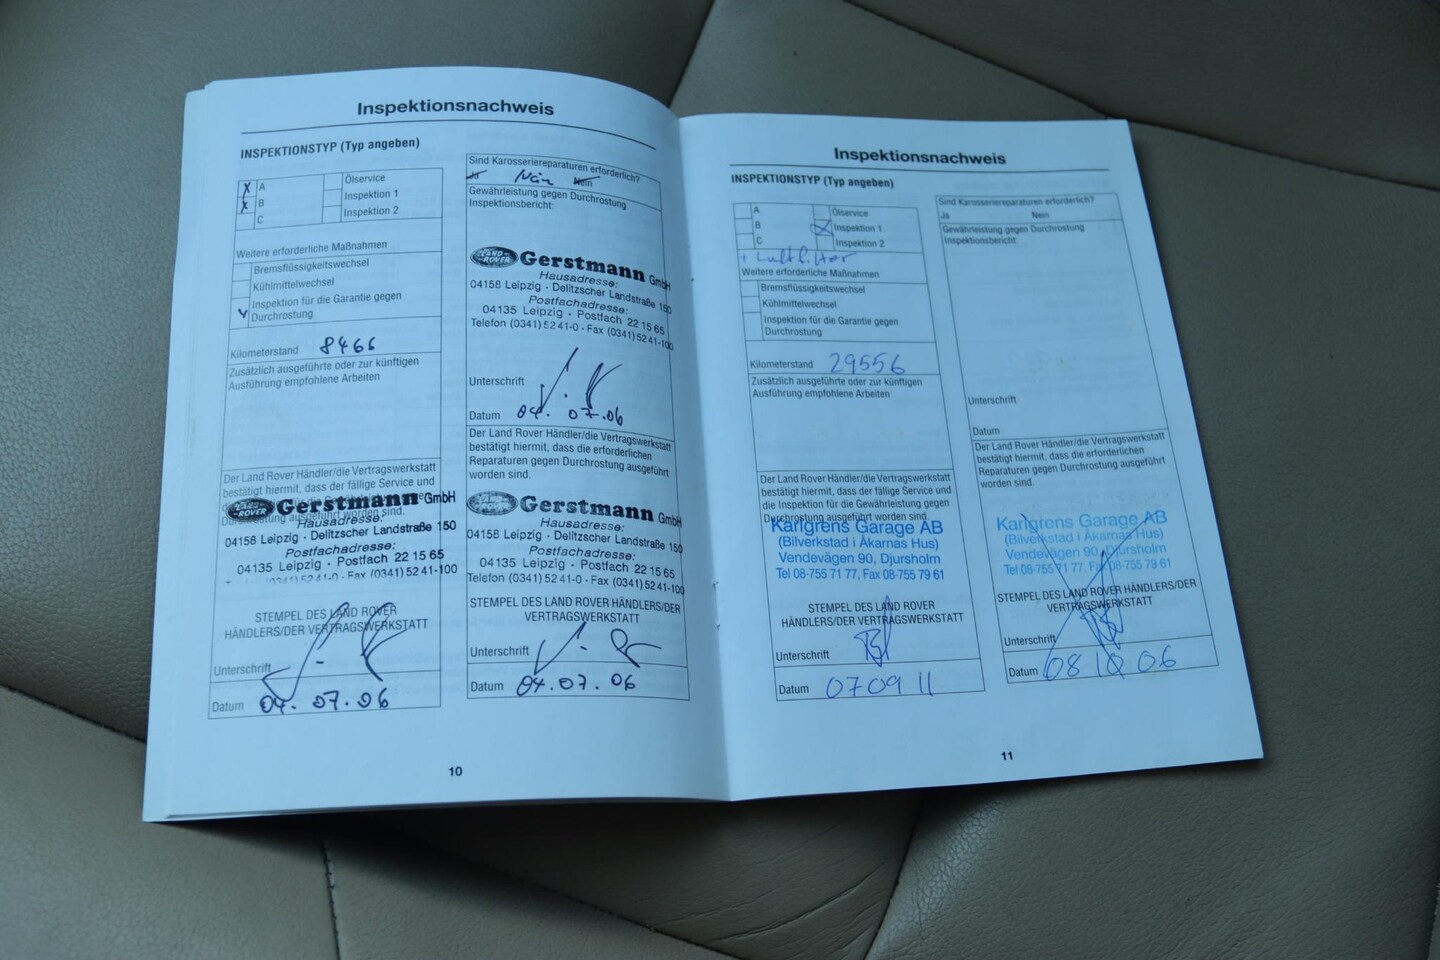 Inspektionsnachweis
INSPEKTIONSTYP (Typ angeben)
X A
X B
C
Ölservice
Inspektion 1
Inspektion 2
Weitere erforderliche Maßnahmen
Bremsflüssigkeitswechsel
Kühlmittelwechsel
Inspektion für die Garantie gegen
Durchrostung
Kilometerstand 8466
Zusätzlich ausgeführte oder zur künftigen
Ausführung empfohlene Arbeiten
Der Land Rover Händler/die Vertragswerkstatt
bestätigt hiermit, dass der fällige Service und
ausgeführt worden sind.
LAND ROVER Gerstmann GmbH
Hausadresse:
04158 Leipzig · Delitzscher Landstraße 150
Postfachadresse:
04135 Leipzig · Postfach 22 15 65
(0341) 52 41-0 · Fax (0341) 52 41-100
STEMPEL DES LAND ROVER
HÄNDLERS/DER VERTRAGSWERKSTATT
Unterschrift
Datum 04. 07. 06
Sind Karosseriereparaturen erforderlich?
Ja Nein
Gewährleistung gegen Durchrostung
Inspektionsbericht:
LAND ROVER Gerstmann GmbH
Hausadresse:
04158 Leipzig · Delitzscher Landstraße 150
Postfachadresse:
04135 Leipzig · Postfach 22 15 65
Telefon (0341) 52 41-0 · Fax (0341) 52 41-100
Unterschrift
Datum 04. 07. 06
Der Land Rover Händler/die Vertragswerkstatt
bestätigt hiermit, dass die erforderlichen
Reparaturen gegen Durchrostung ausgeführt
worden sind.
LAND ROVER Gerstmann GmbH
Hausadresse:
04158 Leipzig · Delitzscher Landstraße 150
Postfachadresse:
04135 Leipzig · Postfach 22 15 65
Telefon (0341) 52 41-0 · Fax (0341) 52 41-100
STEMPEL DES LAND ROVER HÄNDLERS/DER
VERTRAGSWERKSTATT
Unterschrift
Datum 04. 07. 06
10
Inspektionsnachweis
INSPEKTIONSTYP (Typ angeben)
A
B
C
Ölservice
X Inspektion 1
Inspektion 2
+ Luftfilter
Weitere erforderliche Maßnahmen
Bremsflüssigkeitswechsel
Kühlmittelwechsel
Inspektion für die Garantie gegen
Durchrostung
Kilometerstand 29556
Zusätzlich ausgeführte oder zur künftigen
Ausführung empfohlene Arbeiten
Der Land Rover Händler/die Vertragswerkstatt
bestätigt hiermit, dass der fällige Service und
die Inspektion für die Gewährleistung gegen
Durchrostung ausgeführt worden sind.
Karlgrens Garage AB
(Bilverkstad i Åkarnas Hus)
Vendevägen 90, Djursholm
Tel 08-755 71 77, Fax 08-755 79 61
STEMPEL DES LAND ROVER
HÄNDLERS/DER VERTRAGSWERKSTATT
Unterschrift
Datum 07 09 11
Sind Karosseriereparaturen erforderlich?
Ja Nein
Gewährleistung gegen Durchrostung
Inspektionsbericht:
Unterschrift
Datum
Der Land Rover Händler/die Vertragswerkstatt
bestätigt hiermit, dass die erforderlichen
Reparaturen gegen Durchrostung ausgeführt
worden sind.
Karlgrens Garage AB
(Bilverkstad i Åkarnas Hus)
Vendevägen 90, Djursholm
Tel 08-755 71 77, Fax 08-755 79 61
STEMPEL DES LAND ROVER HÄNDLERS/DER
VERTRAGSWERKSTATT
Unterschrift
Datum 08 10 06
11